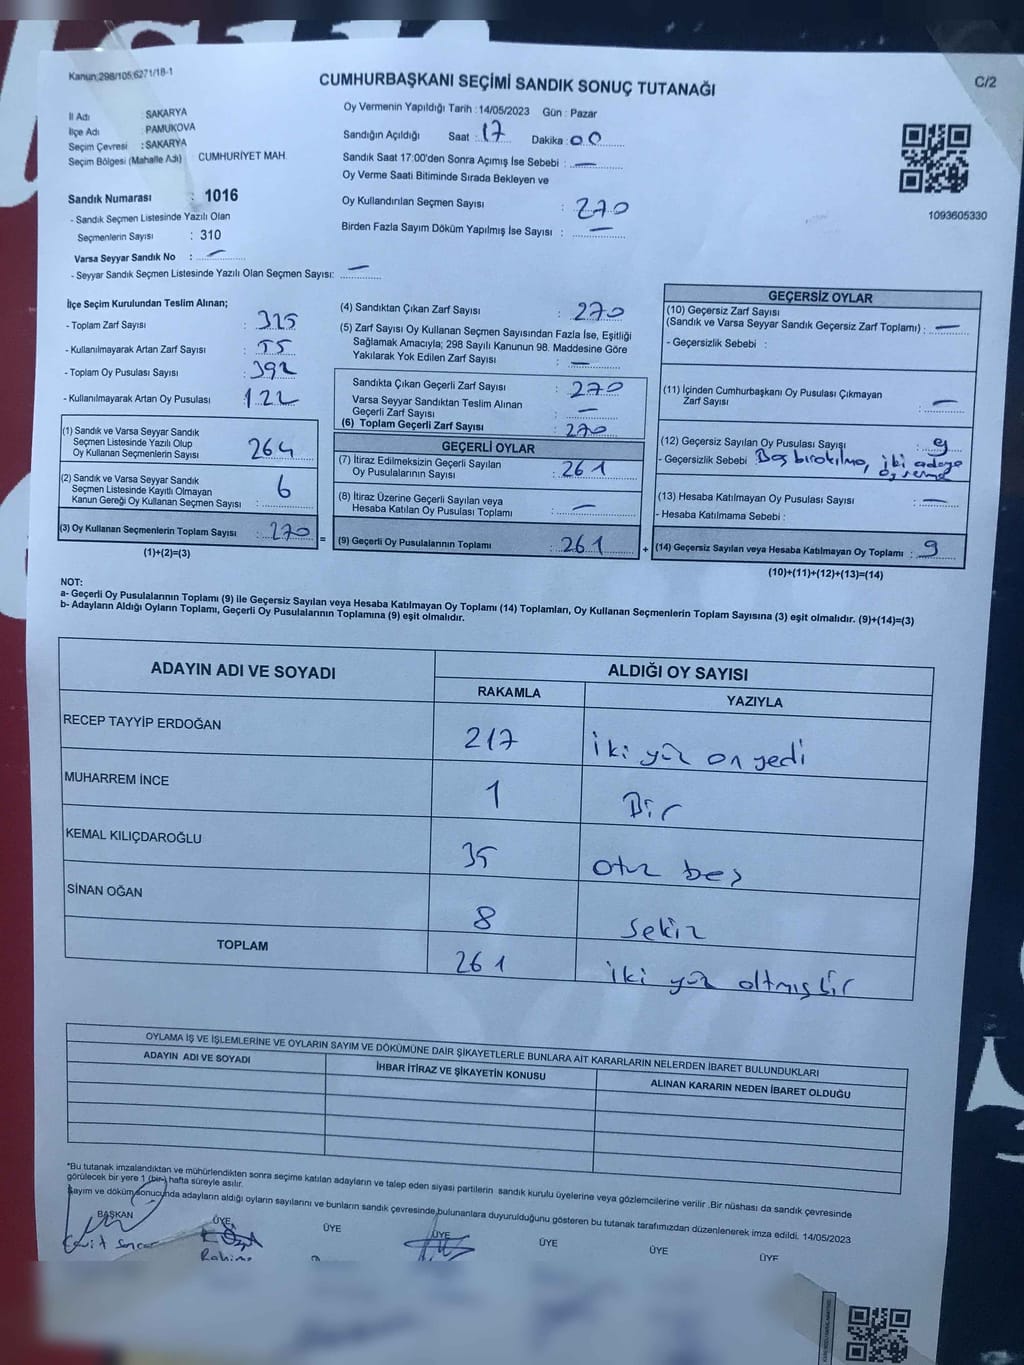 Kanun:298/105,6271/18-1
CUMHURBAŞKANI SEÇİMİ SANDIK SONUÇ TUTANAĞI
C/2
İl Adı : SAKARYA
İlçe Adı : PAMUKOVA
Seçim Çevresi : SAKARYA
Seçim Bölgesi (Mahalle Adı) CUMHURİYET MAH.
Sandık Numarası : 1016
- Sandık Seçmen Listesinde Yazılı Olan
Seçmenlerin Sayısı : 310
Varsa Seyyar Sandık No : —
- Seyyar Sandık Seçmen Listesinde Yazılı Olan Seçmen Sayısı: —
Oy Vermenin Yapıldığı Tarih : 14/05/2023 Gün : Pazar
Sandığın Açıldığı Saat : 17 Dakika : 00
Sandık Saat 17:00'den Sonra Açımış İse Sebebi : —
Oy Verme Saati Bitiminde Sırada Bekleyen ve
Oy Kullandırılan Seçmen Sayısı : 270
Birden Fazla Sayım Döküm Yapılmış İse Sayısı : —
1093605330
İlçe Seçim Kurulundan Teslim Alınan;
- Toplam Zarf Sayısı : 325
- Kullanılmayarak Artan Zarf Sayısı : 55
- Toplam Oy Pusulası Sayısı : 392
- Kullanılmayarak Artan Oy Pusulası : 122
(1) Sandık ve Varsa Seyyar Sandık
Seçmen Listesinde Yazılı Olup
Oy Kullanan Seçmenlerin Sayısı : 264
(2) Sandık ve Varsa Seyyar Sandık
Seçmen Listesinde Kayıtlı Olmayan
Kanun Gereği Oy Kullanan Seçmen Sayısı : 6
(3) Oy Kullanan Seçmenlerin Toplam Sayısı : 270 =
(1)+(2)=(3)
(4) Sandıktan Çıkan Zarf Sayısı : 270
(5) Zarf Sayısı Oy Kullanan Seçmen Sayısından Fazla İse, Eşitliği
Sağlamak Amacıyla; 298 Sayılı Kanunun 98. Maddesine Göre
Yakılarak Yok Edilen Zarf Sayısı : —
Sandıkta Çıkan Geçerli Zarf Sayısı : 270
Varsa Seyyar Sandıktan Teslim Alınan
Geçerli Zarf Sayısı : —
(6) Toplam Geçerli Zarf Sayısı : 270
GEÇERLİ OYLAR
(7) İtiraz Edilmeksizin Geçerli Sayılan
Oy Pusulalarının Sayısı : 261
(8) İtiraz Üzerine Geçerli Sayılan veya
Hesaba Katılan Oy Pusulası Toplamı : —
(9) Geçerli Oy Pusulalarının Toplamı : 261 +
GEÇERSİZ OYLAR
(10) Geçersiz Zarf Sayısı
(Sandık ve Varsa Seyyar Sandık Geçersiz Zarf Toplamı) : —
- Geçersizlik Sebebi :
(11) İçinden Cumhurbaşkanı Oy Pusulası Çıkmayan
Zarf Sayısı : —
(12) Geçersiz Sayılan Oy Pusulası Sayısı : 9
- Geçersizlik Sebebi Boş bırakılma, iki adaya
(13) Hesaba Katılmayan Oy Pusulası Sayısı : —
- Hesaba Katılmama Sebebi :
(14) Geçersiz Sayılan veya Hesaba Katılmayan Oy Toplamı : 9
(10)+(11)+(12)+(13)=(14)
NOT:
a- Geçerli Oy Pusulalarının Toplamı (9) ile Geçersiz Sayılan veya Hesaba Katılmayan Oy Toplamı (14) Toplamları, Oy Kullanan Seçmenlerin Toplam Sayısına (3) eşit olmalıdır. (9)+(14)=(3)
b- Adayların Aldığı Oyların Toplamı, Geçerli Oy Pusulalarının Toplamına (9) eşit olmalıdır.
ADAYIN ADI VE SOYADI ALDIĞI OY SAYISI
RAKAMLA YAZIYLA
RECEP TAYYİP ERDOĞAN 217 iki yüz on yedi
MUHARREM İNCE 1 Bir
KEMAL KILIÇDAROĞLU 35 otuz beş
SİNAN OĞAN 8 sekiz
TOPLAM 261 iki yüz altmış bir
OYLAMA İŞ VE İŞLEMLERİNE VE OYLARIN SAYIM VE DÖKÜMÜNE DAİR ŞİKAYETLERLE BUNLARA AİT KARARLARIN NELERDEN İBARET BULUNDUKLARI
ADAYIN ADI VE SOYADI İHBAR İTİRAZ VE ŞİKAYETİN KONUSU ALINAN KARARIN NEDEN İBARET OLDUĞU
*Bu tutanak imzalandıktan ve mühürlendikten sonra seçime katılan adayların ve talep eden siyasi partilerin sandık kurulu üyelerine veya gözlemcilerine verilir .Bir nüshası da sandık çevresinde
görülecek bir yere 1 (bir) hafta süreyle asılır.
Sayım ve döküm sonucunda adayların aldığı oyların sayılarını ve bunların sandık çevresinde bulunanlara duyurulduğunu gösteren bu tutanak tarafımızdan düzenlenerek imza edildi. 14/05/2023
BAŞKAN ÜYE ÜYE ÜYE ÜYE ÜYE ÜYE